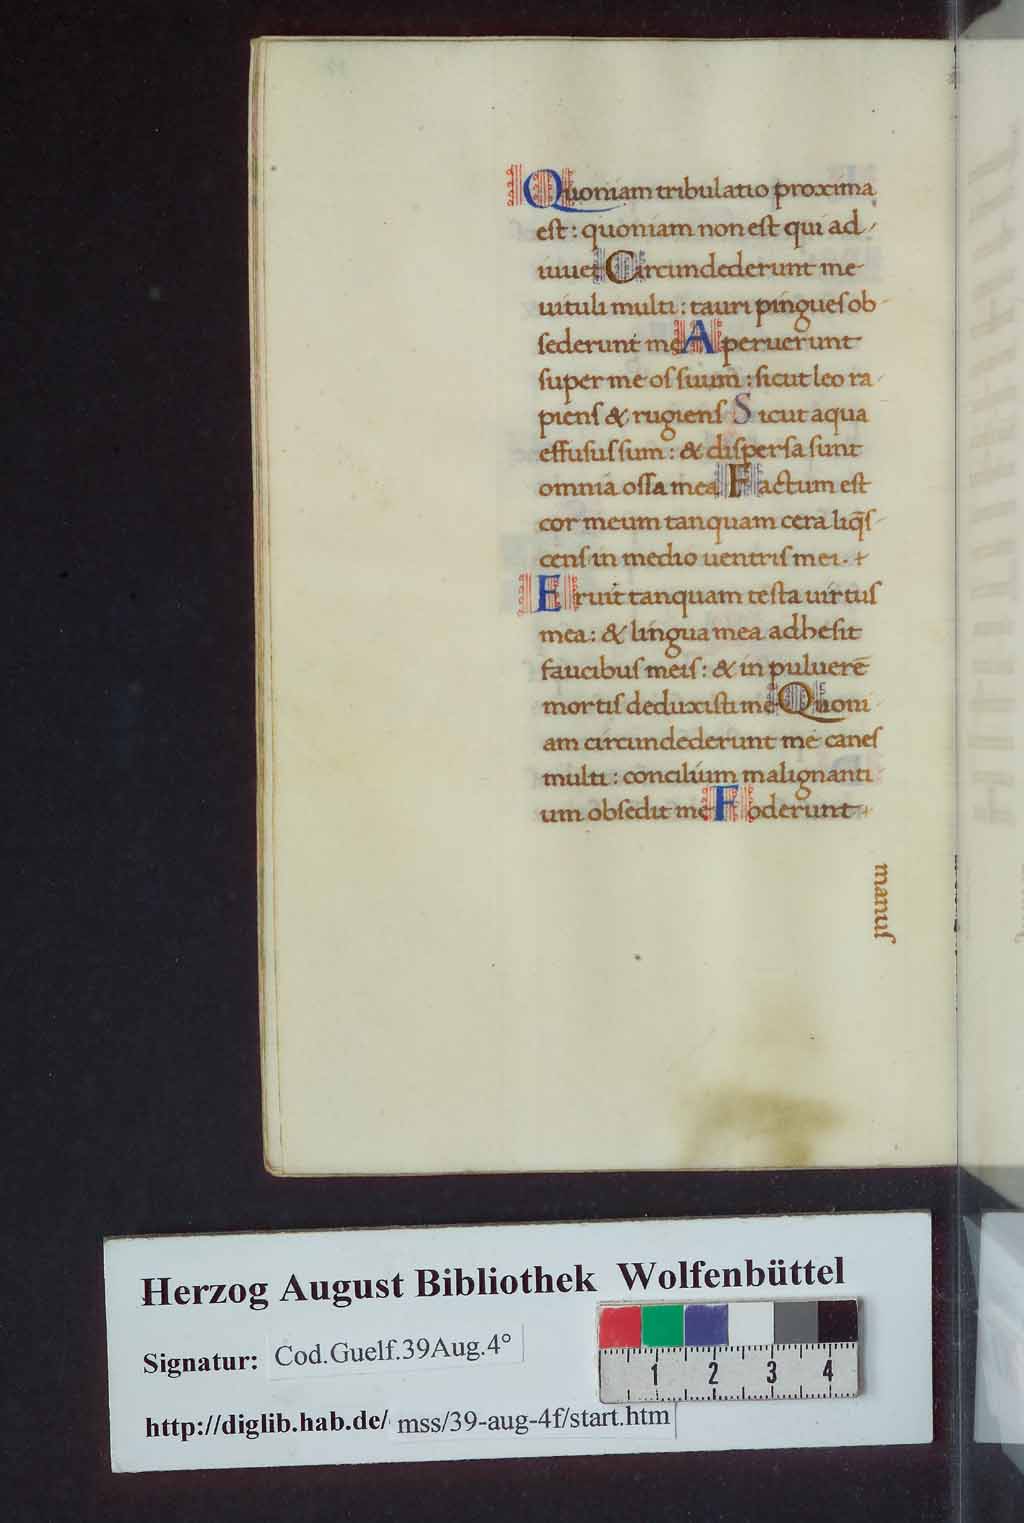 Quoniam tribulatio proxima
est: quoniam non est qui ad/
iuuet Circundederunt me
uituli multi: tauri pingueſ ob
ſederunt me Aperuerunt
ſuper me os ſuum: ſicut leo ra
pienſ & rugienſ Sicut aqua
effuſuſ ſum: & diſperſa ſunt
omnia oſſa mea Factum eſt
cor meum tanquam cera liq̄ſ
cenſ in medio uentriſ mei. +
Eruit tanquam teſta uirtuſ
mea: & lingua mea adheſit
faucibuſ meiſ: & in puluerē
mortiſ deduxiſti me Quoni
am circundederunt me caneſ
multi: concilium malignanti
um obſedit me Foderunt
manuſ
Herzog August Bibliothek Wolfenbüttel
Signatur: Cod.Guelf.39Aug.4°
http://diglib.hab.de/ mss/39-aug-4f/start.htm
1 2 3 4